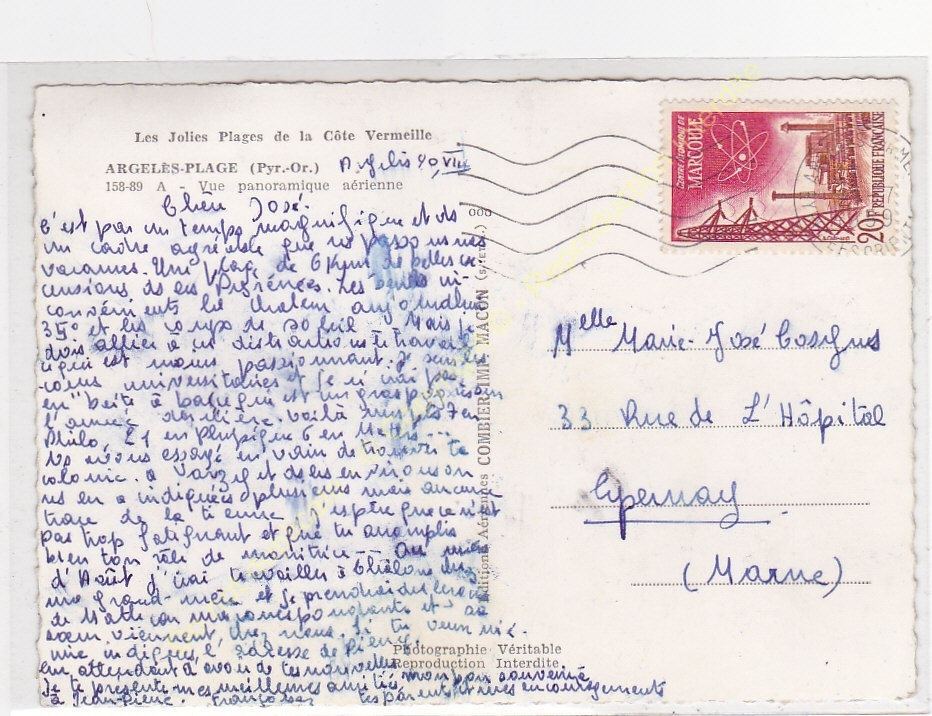 Les Jolies Plages de la Côte Vermeille
ARGELÈS-PLAGE (Pyr.-Or.)
158-89 A - Vue panoramique aérienne
Chère José.
C'est par un temps magnifique et ds
un cadre agréable que ns passons nos
vacances. Une plage de 6 Kms de belles ex
cursions ds les Pyrénées. Les seuls in-
convénients la chaleur aujourd'hui
35° et les coups de soleil. Mais je
dois allier à ces distractions le travail
ce qui est moins passionnant. Je
cours universitaires et je n'irai pas
en "boite à bac" qui est un
l'année dernière. voilà mes 7 en
Philo, 21 en physique 6 en Maths...
Ns avons essayé en vain de trouver ta
colonie. à Varzy et ds les environs on
ns en a indiquées plusieurs mais aucune
trace de la tienne. J'espère que ce n'est
pas trop fatigant et que tu accomplis
bien ton rôle de monitrice... Au mois
d'Août j'irai travailler à Châlons chez
ma grand-mère et je prendrai des leçons
de Maths con ma correspondante et sa
soeur viennent chez nous. Si tu veux
indique l'adresse de Pierre,
en attendant d'avoir de tes nouvelles mon bon souvenir à
Je te présente mes meilleures amitiés tes parents et mes encouragements
à Jean-Pierre. Françoise
Éditions Aériennes COMBIER IMP. MACON (S.-et-L.)
Photographie Véritable
Reproduction Interdite
CENTRE ATOMIQUE DE
MARCOULE
20F
REPUBLIQUE FRANÇAISE
Melle Marie-José
33 Rue de L'Hôpital
Epernay
(Marne)